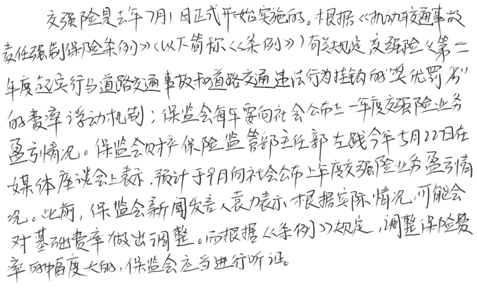 交强险是去年7月1日正式开始实施的。根据《机动车交通事故
责任强制保险条例》(以下简称《条例》)有关规定,交强险从第二
年度起实行与道路交通事故和道路交通违法行为挂钩的“奖优罚劣”
的费率浮动机制;保监会每年要向社会公布上一年度交强险业务
盈亏情况。保监会财产保险监管部主任郭左践今年5月22日在
媒体座谈会上表示,预计于9月向社会公布上年度交强险业务盈亏情
况。此前,保监会新闻发言人袁力表示,根据实际情况,可能会
对基础费率做出调整。而根据《条例》规定,调整保险费
率的幅度大的,保监会应当进行听证。